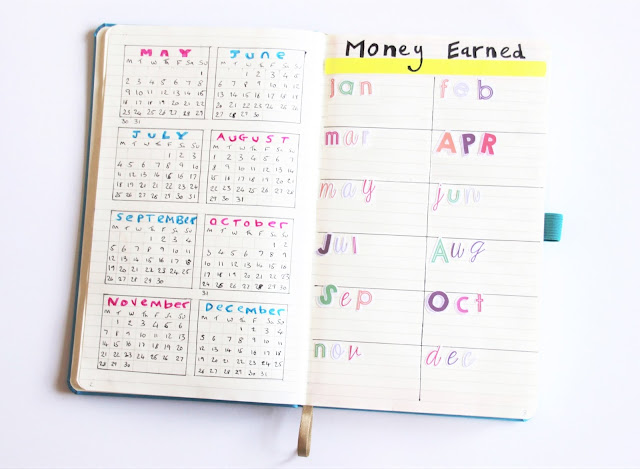 MAY
M T W Th F Sa Su
1
2 3 4 5 6 7 8
9 10 11 12 13 14 15
16 17 18 19 20 21 22
23 24 25 26 27 28 29
30 31
JUNE
M T W Th F Sa Su
1 2 3 4 5
6 7 8 9 10 11 12
13 14 15 16 17 18 19
20 21 22 23 24 25 26
27 28 29 30
JULY
M T W Th F Sa Su
1 2 3
4 5 6 7 8 9 10
11 12 13 14 15 16 17
18 19 20 21 22 23 24
25 26 27 28 29 30 31
AUGUST
M T W Th F Sa Su
1 2 3 4 5 6 7
8 9 10 11 12 13 14
15 16 17 18 19 20 21
22 23 24 25 26 27 28
29 30 31
SEPTEMBER
M T W Th F Sa Su
1 2 3 4
5 6 7 8 9 10 11
12 13 14 15 16 17 18
19 20 21 22 23 24 25
26 27 28 29 30
OCTOBER
M T W Th F Sa Su
1 2
3 4 5 6 7 8 9
10 11 12 13 14 15 16
17 18 19 20 21 22 23
24 25 26 27 28 29 30
31
November
M T W Th F Sa Su
1 2 3 4 5 6
7 8 9 10 11 12 13
14 15 16 17 18 19 20
21 22 23 24 25 26 27
28 29 30
December
M T W Th F Sa Su
1 2 3 4
5 6 7 8 9 10 11
12 13 14 15 16 17 18
19 20 21 22 23 24 25
26 27 28 29 30 31
Money Earned
jan feb
mar APR
may jun
Jul Aug
Sep Oct
nov dec